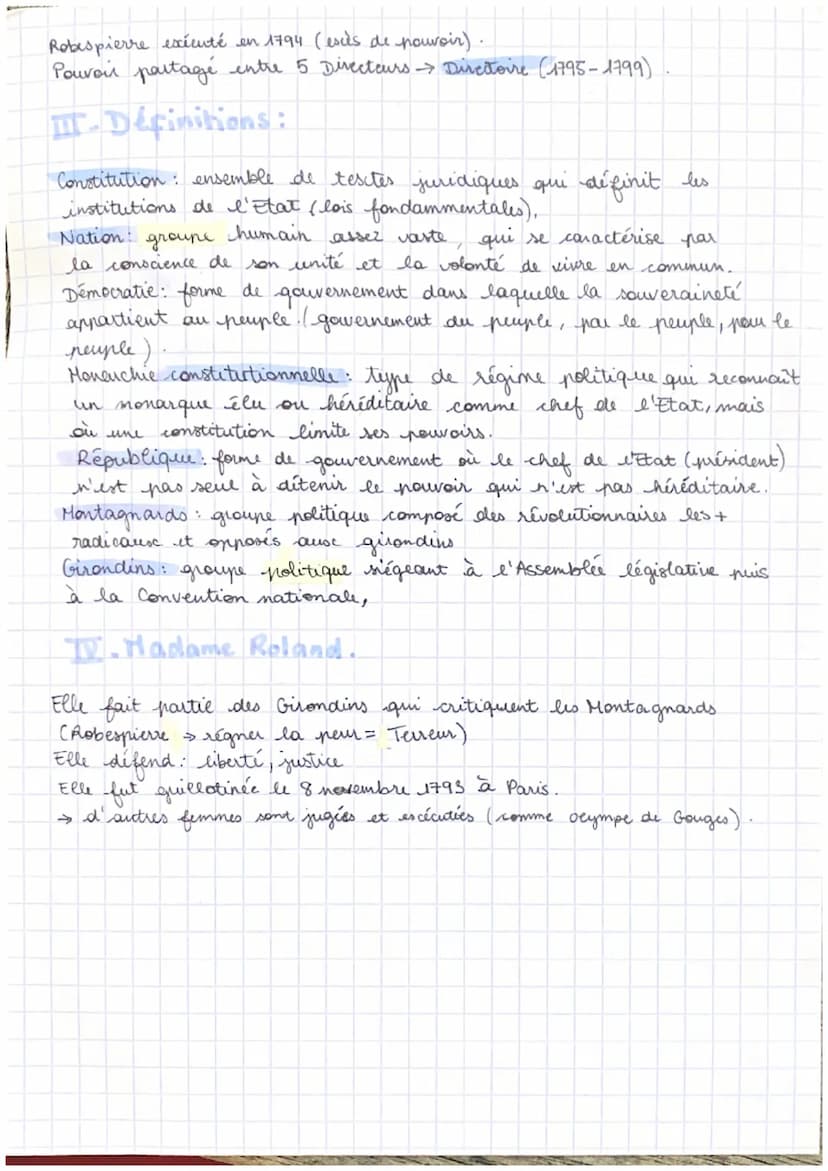 Robespierre exécuté en 1794 (escès de pouvoir).
Pouvoir partagé entre 5 Directeurs → Directoire (1795-1799).
III-Définitions:
Constitution : ensemble de textes juridiques qui définit les
institutions de l'Etat (lois fondammentales),
Nation: groupe humain assez vaste, qui se caractérise par
la conscience de son unité et la volonté de vivre en commun.
Démocratie: forme de gouvernement dans laquelle la souveraineté
appartient au peuple.(gouvernement du peuple, par le peuple, pour le
peuple).
Monarchie constitutionnelle : type de régime politique qui reconnaît
un monarque élu ou héréditaire comme chef de l'Etat, mais
où une constitution limite ses pouvoirs.
République : forme de gouvernement où le chef de l'Etat (président)
n'est pas seul à détenir le pouvoir qui n'est pas héréditaire.
Montagnards : groupe politique composé des révolutionnaires les +
radicaux et opposés aux girondins
Girondins : groupe politique siégeant à l'Assemblée législative puis
à la Convention nationale,
IV.Madame Roland.
Elle fait partie des Girondins qui critiquent les Montagnards
(Robespierre → régner la peur = Terreur)
Elle défend : liberté, justice
Elle fut guillotinée le 8 novembre 1793 à Paris.
→ d'autres femmes sont jugées et exécutées (comme Olympe de Gouges).